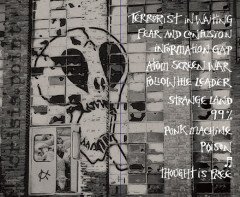 TERRORIST IN WAITING
FEAR AND CONFUSION
INFORMATION GAP
ATOM SCREEN WAR
FOLLOW THE LEADER
STRANGE LAND
99%
PUNK MACHINE
POISON
♫
THOUGHT IS FREE